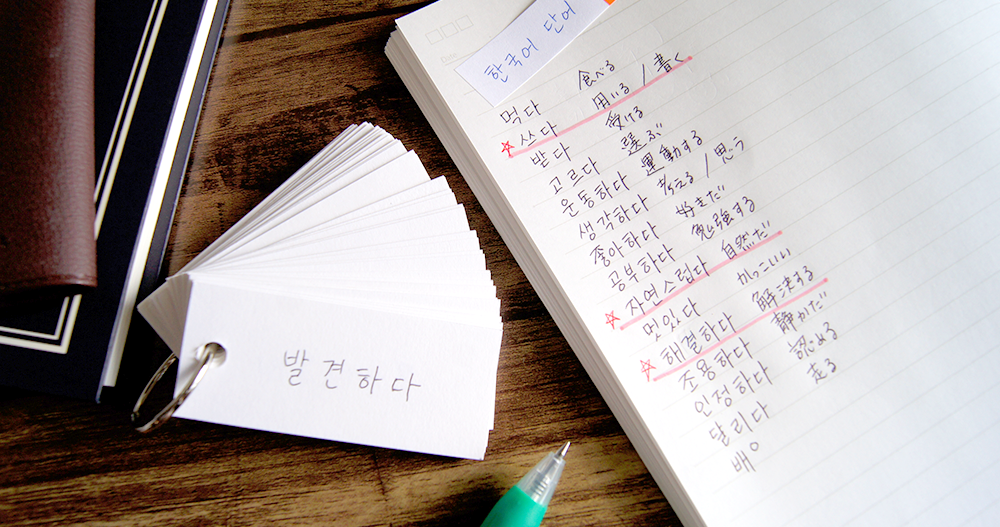 한국어 단어
먹다 食べる
☆쓰다 用いる / 書く
받다 受ける
고르다 選ぶ
운동하다 運動する
생각하다 考える / 思う
좋아하다 好きだ
공부하다 勉強する
☆자연스럽다 自然だ
멋있다 かっこいい
☆해결하다 解決する
조용하다 静かだ
인정하다 認める
달리다 走る
배우
발견하다